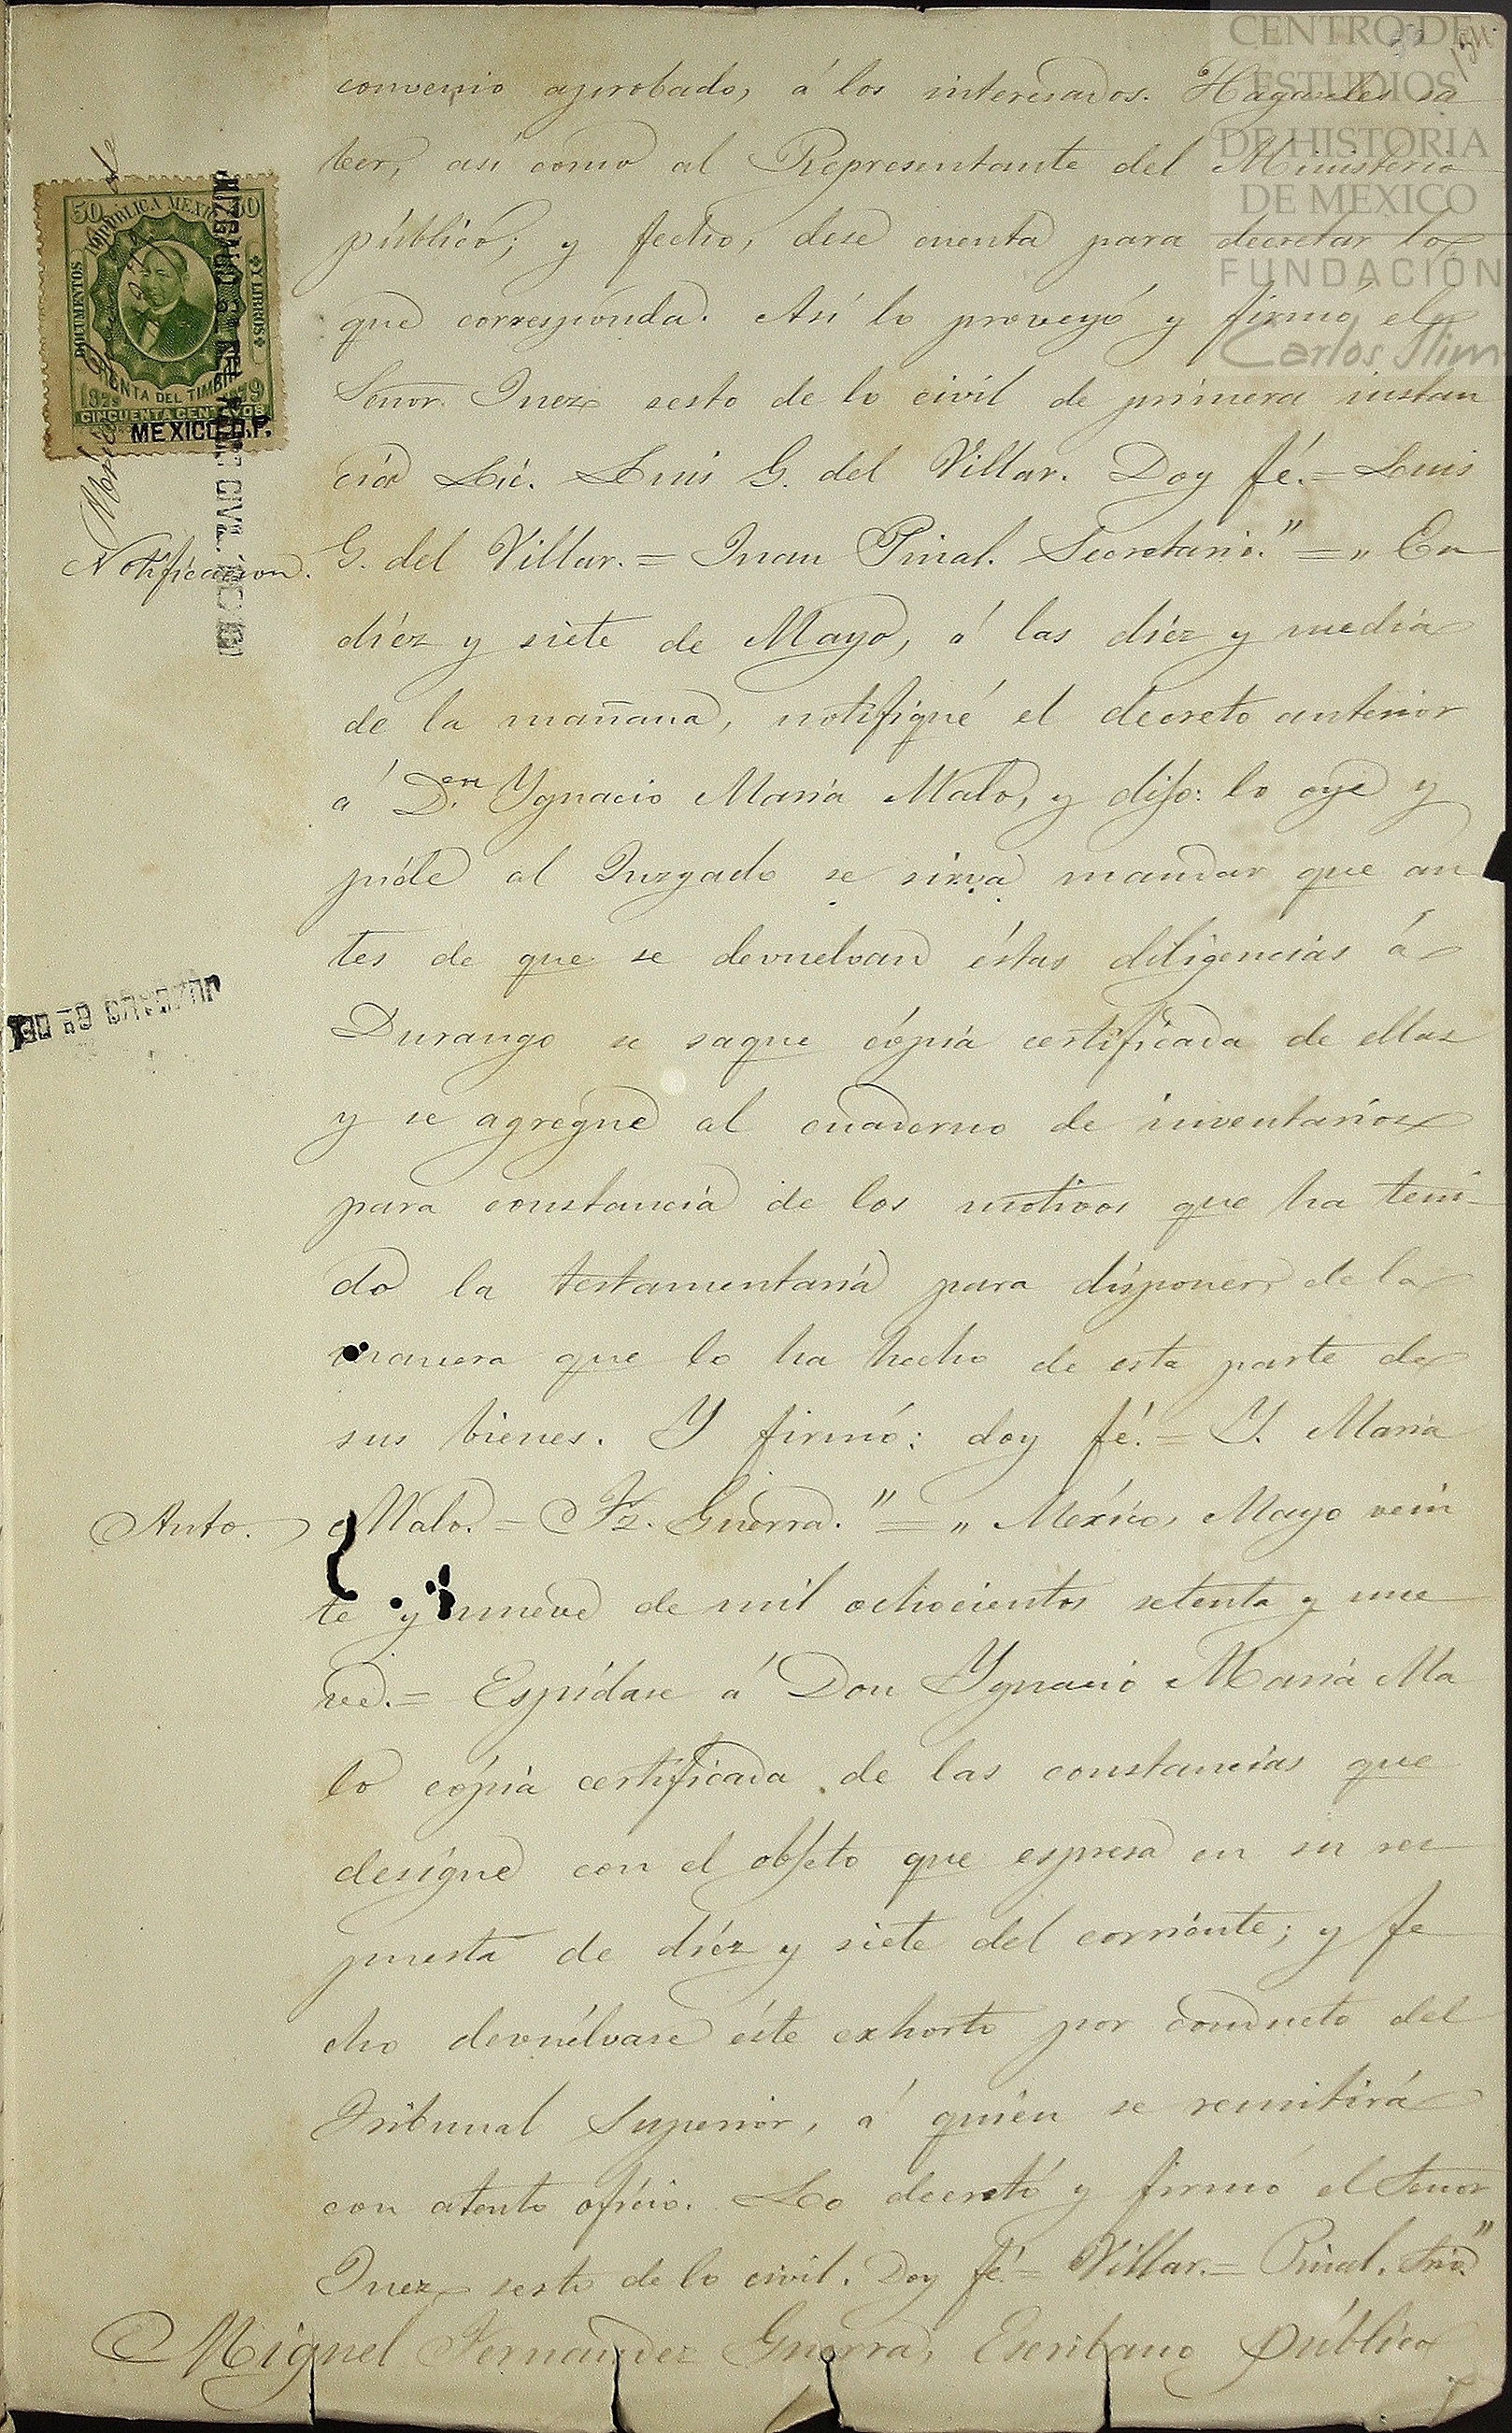 CENTRO DE
ESTUDIOS
DE HISTORIA
DE MEXICO
FUNDACIÓN
Carlos Slim
convenio aprobado, á los interesados. Hagaseles sa
ber, así como al Representante del Ministerio
público; y fecho, dese cuenta para decretar lo
que corresponda. Así lo proveyó y firmó el
Señor Juez sesto de lo civil de primera instan
cia Lic. Luis G. del Villar. Doy fé.= Luis
Notificacion.
G. del Villar.= Juan Pinal. Secretario."=„ En
diéz y siete de Mayo, á las diéz y media
de la mañana, notifiqué el decreto anterior
á Dn. Ygnacio María Malo, y dijo: lo oye y
pide al Juzgado se sirva mandar que an
tes de que se devuelvan éstas diligencias á
Durango se saque cópia certificada de ellas
y se agregue al cuaderno de inventarios
para constancia de los motivos que ha teni-
do la testamentaría para disponer de la
manera que lo ha hecho de esta parte de
sus bienes. Y firmó: doy fé.= Y. María
Auto.
Malo.= Fz. Guerra."=„ México, Mayo vein
te y nueve de mil ochocientos setenta y nue
ve.= Espídase á Don Ygnacio María Ma
lo cópia certificada de las constancias que
designe con el objeto que espresa en su res
puesta de diéz y siete del corriente; y fe
cho devuélvase éste exhorto por conducto del
Tribunal Superior, á quién se remitirá
con atento oficio. Lo decretó y firmó el Señor
Juez sesto de lo civil. Doy fé.= Villar.= Pinal. Srio."
Miguel Fernandez Guerra, Escribano Público
50
REPÚBLICA MEXICANA
50
DOCUMENTOS
Y LIBROS
RENTA DEL TIMBRE
1879
CINCUENTA CENTAVOS
MEXICO D.F.